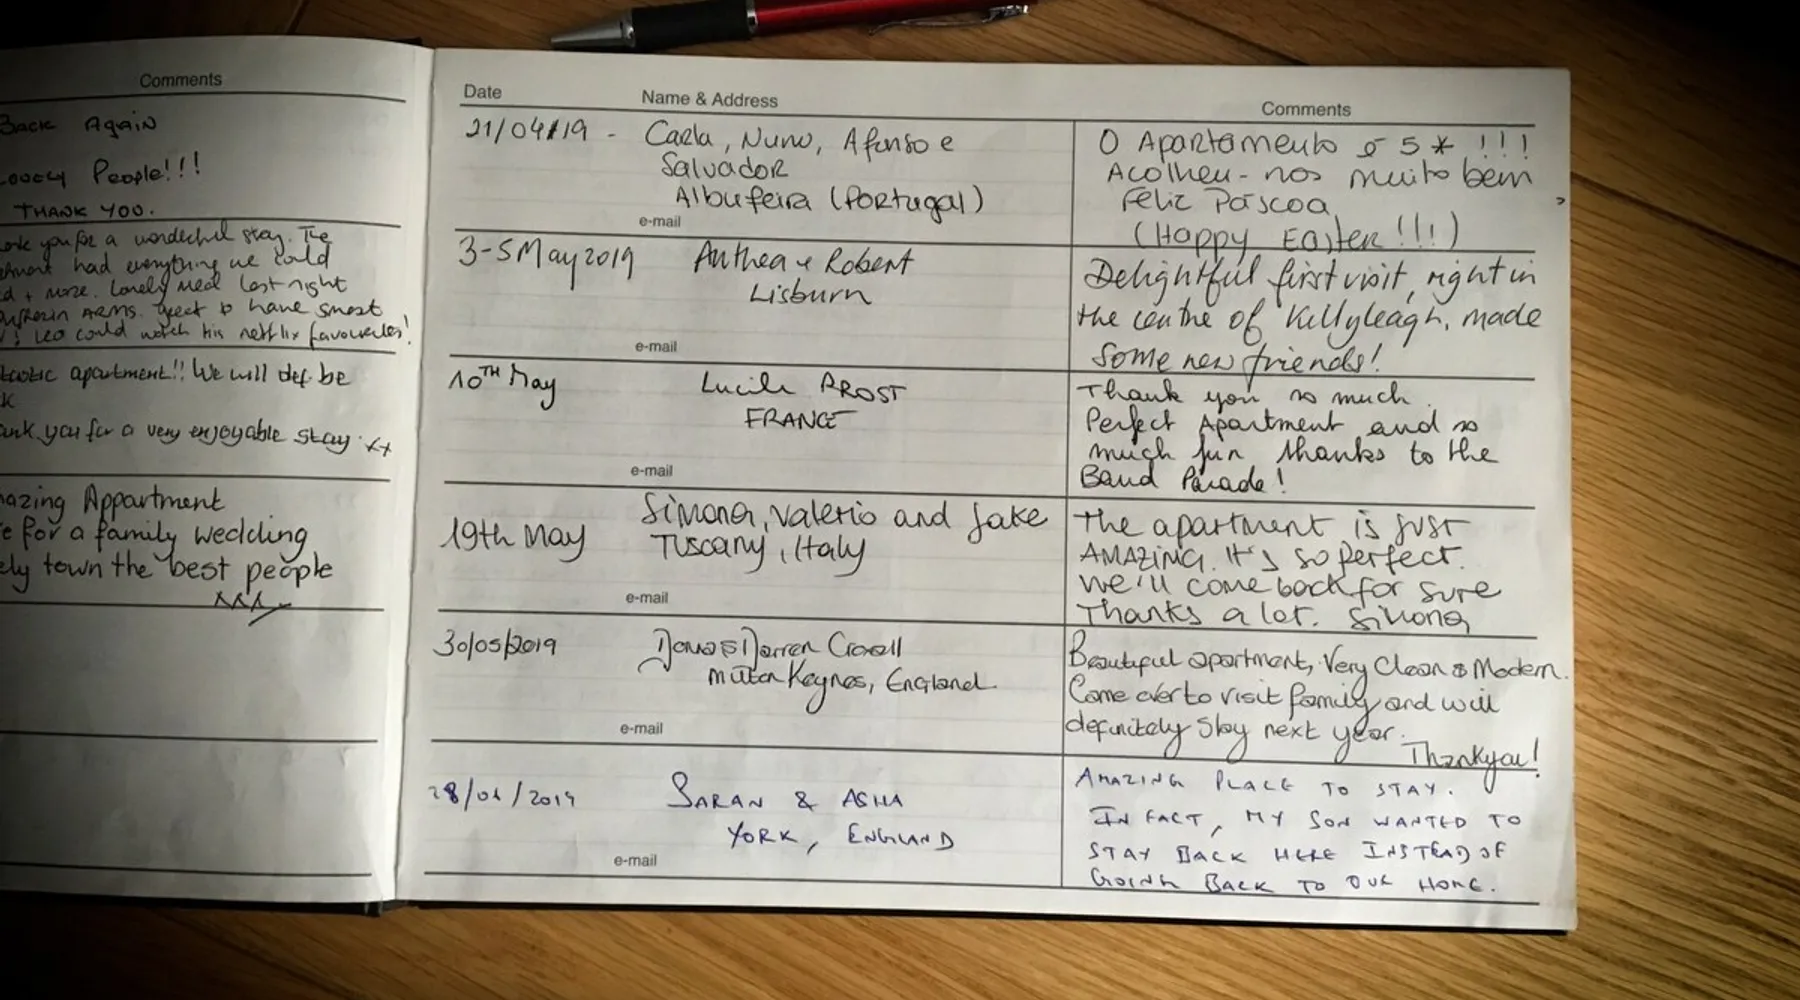 Comments
Back Again
Lovely People!!!
THANK YOU.
you for a wonderful stay. The
had everything we could
+ more. Lovely meal last night
ARMS. great to have smart
Leo could watch his netflix favourites!
apartment!! We will def be
you for a very enjoyable stay xx
Appartment
for a family wedding
town the best people
xxx
Date Name & Address Comments
21/04/19 - Carla, Nuno, Afonso e
Salvador
Albufeira (Portugal)
e-mail
O Apartamento é 5 * !!!
Acolheu-nos muito bem
Feliz Páscoa
(Happy Easter!!!)
3-5 May 2019 Anthea & Robert
Lisburn
e-mail
Delightful first visit, right in
the centre of Killyleagh, made
some new friends!
10TH May Lucile PROST
FRANCE
e-mail
Thank you so much.
Perfect Apartment and so
much fun thanks to the
Band Parade!
19th May Simona, Valerio and Jake
Tuscany, Italy
e-mail
The apartment is just
AMAZING. It's so perfect.
We'll come back for sure
Thanks a lot. Simona
30/05/2019 Darren
Milton Keynes, England
e-mail
Beautiful apartment, Very Clean & Modern.
Came over to visit family and will
definitely stay next year.
Thankyou!
2019 SARAN & ASHA
YORK, ENGLAND
e-mail
AMAZING PLACE TO STAY.
IN FACT, MY SON WANTED TO
STAY BACK HERE INSTEAD OF
GOING BACK TO OUR HOME.